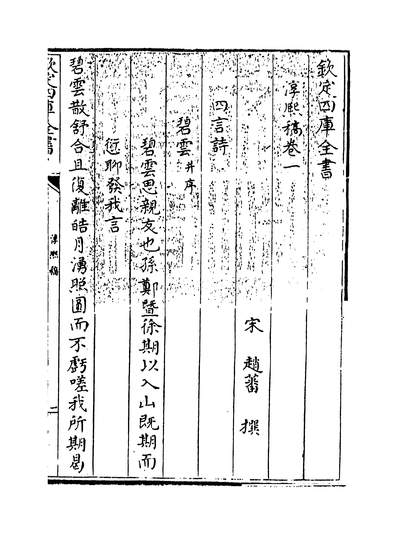 欽定四庫全書
淳熙稿卷一
宋 趙蕃 撰
四言詩
碧雲并序
碧雲思親友也孫鄭暨徐期以入山既期而
愆聊發我言
碧雲散舒合且復離皓月湧照圓而不虧嗟我所期曷
欽定四庫全書
淳熙稿